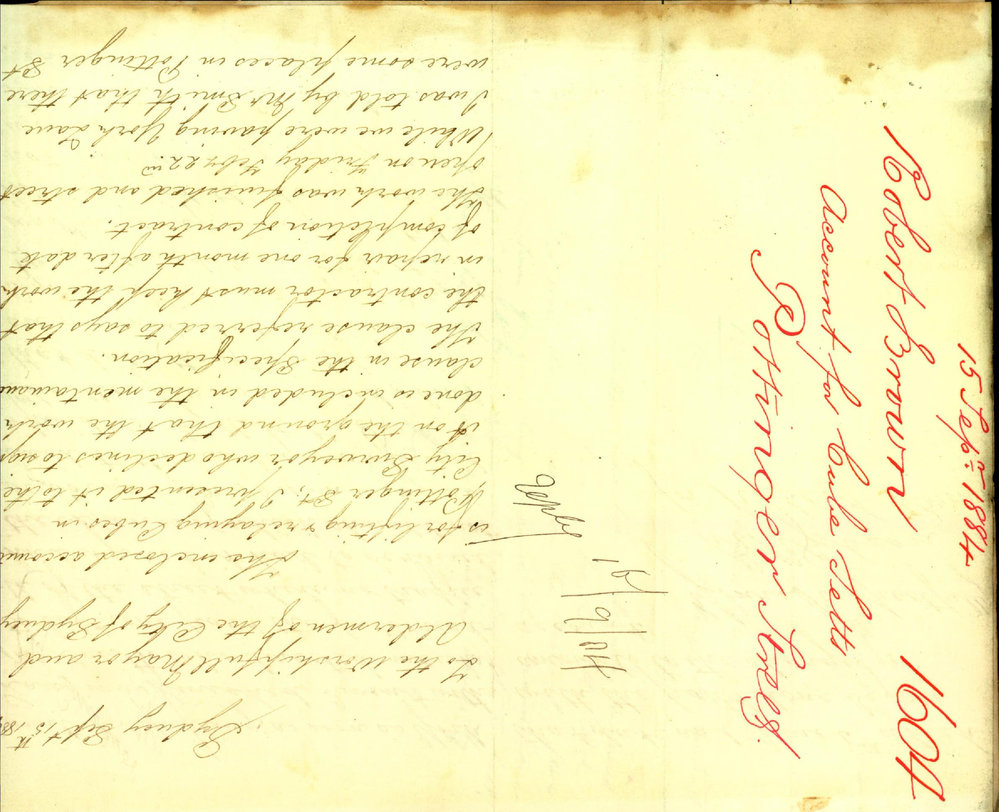 15 Sepr. 1884
1604
Robert Brown
Account for Cube Setts
Pottinger Street.
Reply
16/9/84
Sydney Sept 15th 188
To the Worshipfull Mayor and
Aldermen of the City of Sydney
The inclosed account
is for lifting & relaying Cubes in
Pottinger St, I presented it to the
City Surveyor who declines to sign
it on the ground that the work
done is included in the mentainance
clause in the Specification.
The clause referred to says that
the contractor must keep the work
in repair for one month after date
of completion of contract.
The work was finished and street
open on Friday Feby 22nd
While we were paving York Lane
I was told by Mr Smith that there
were some places in Pottinger St